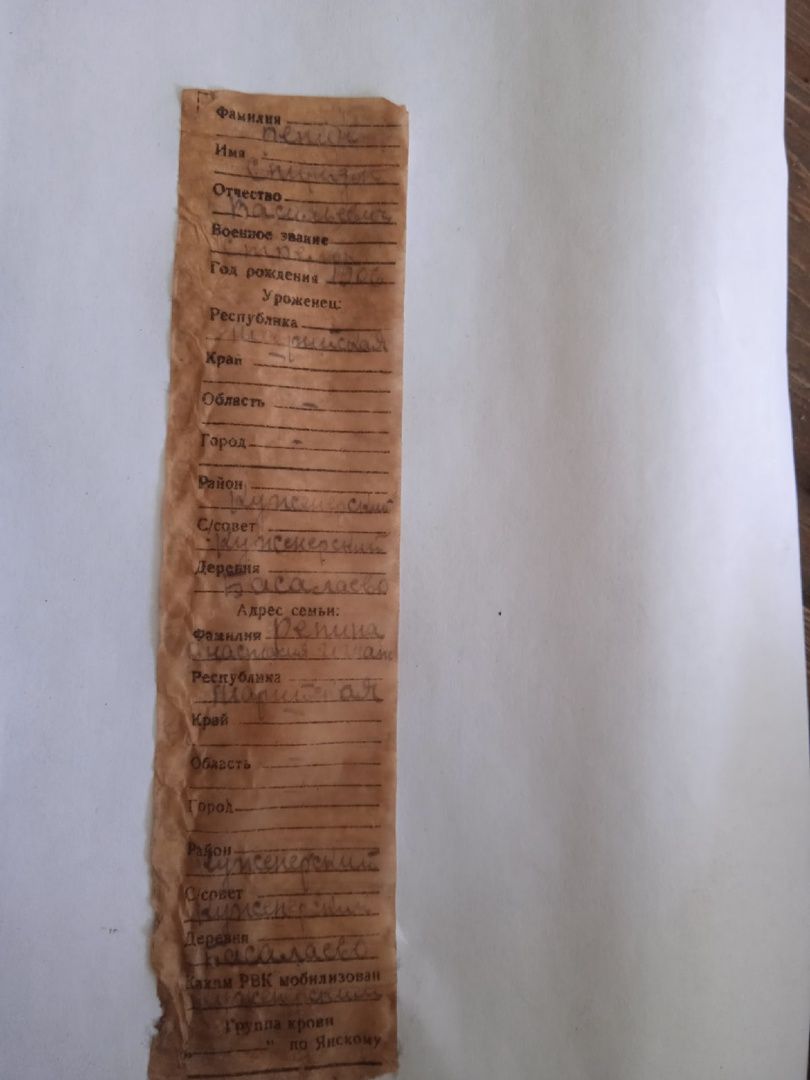 Фамилия
Репин
Имя
Спиридон
Отчество
Васильевич
Военное звание
Стрелок
Год рождения 1906
Уроженец:
Республика
Марийская
Край —
Область —
Город —
Район
Куженерский
С/совет
Куженерский
Деревня
Басалаево
Адрес семьи:
Фамилия Репина
Анастасия
Республика
Марийская
Край —
Область —
Город
Район
Куженерский
С/совет
Куженерский
Деревня
Басалаево
Каким РВК мобилизован
Куженерский
Группа крови
„ “ по Янскому